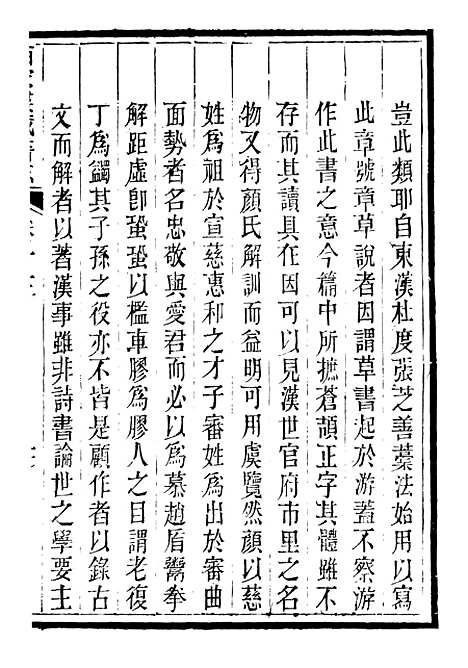 豈此類耶自東漢杜度張芝善藁法始用以寫
此章號章草說者因謂草書起於游蓋不察游
作此書之意今篇中所摭蒼頡正字其體雖不
存而其讀具在因可以見漢世官府市里之名
物又得顏氏解訓而益明可用虞覽然顏以慈
姓爲祖於宣慈惠和之才子審姓爲出於審曲
面勢者名忠敬與愛君而必以爲慕趙盾鬻拳
解距虛卽蛩蛩以檻車膠爲膠人之目謂老復
丁爲蠲其子孫之役亦不皆是顧作者以錄古
文而解者以著漢事雖非詩書論世之學要主